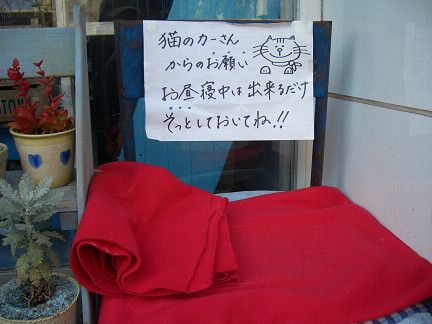 猫のカーさん
からのお願い
お昼寝中は出来るだけ
そっとしておいてね!!